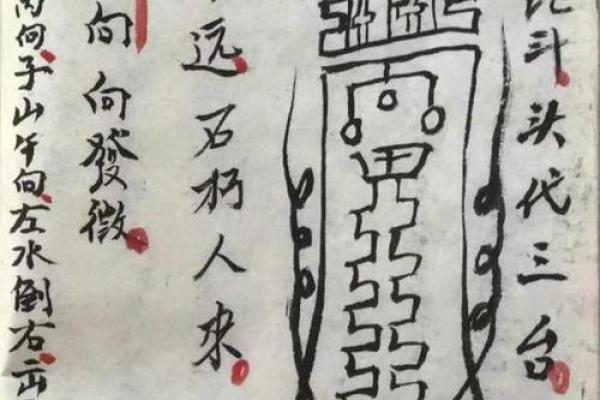 斗头代三台
远石朽人来
向向發微
向子山午向左水倒右